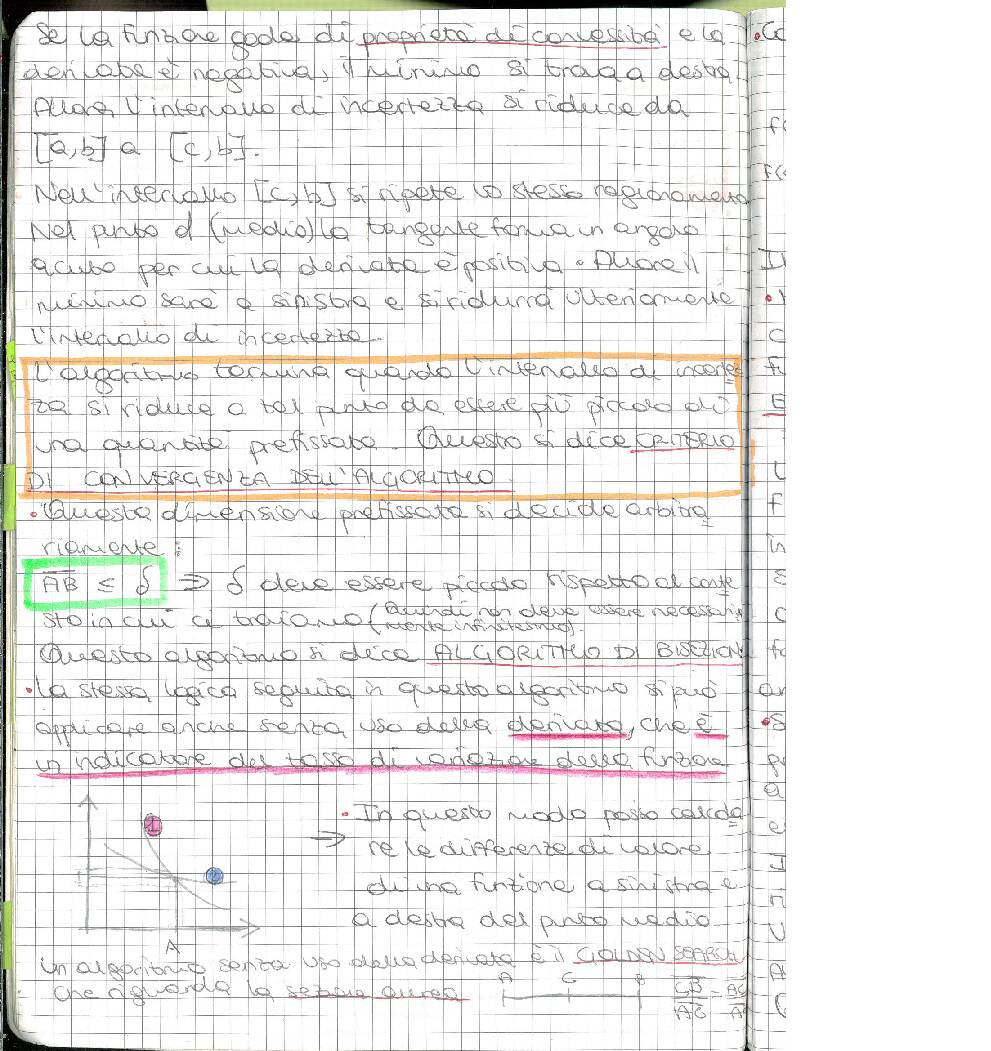 Se la funzione gode di proprietà di convessità e la
derivata è negativa, il minimo si trova a destra.
Allora l'intervallo di incertezza si riduce da
[a,b] a [c,b].
Nell'intervallo [c,b] si ripete lo stesso ragionamento
Nel punto d (medio) la tangente forma un angolo
acuto per cui la derivata è positiva. Allora il
minimo sarà a sinistra e si ridurrà ulteriormente
l'intervallo di incertezza.
L'algoritmo termina quando l'intervallo di incertez
za si riduce a tal punto da essere più piccolo di
una quantità prefissata. Questo si dice CRITERIO
DI CONVERGENZA DELL'ALGORITMO
• Questa dimensione prefissata si decide arbitra
riamente:
AB ≤ δ ⇒ δ deve essere piccolo rispetto al conte
sto in cui ci troviamo (Quindi non deve essere necessaria
mente infinitesimo).
Questo algoritmo si dice ALGORITMO DI BISEZIONE
• La stessa logica seguita in questo algoritmo si può
applicare anche senza uso della derivata, che è
un indicatore del tasso di variazione della funzione
1
2
A
⇒ • In questo modo posso calcola
re le differenze di valore
di una funzione a sinistra e
a destra del punto medio
Un algoritmo senza uso della derivata è il GOLDEN SEARCH
che riguarda la sezione aurea
A C B
CB = AC
AC